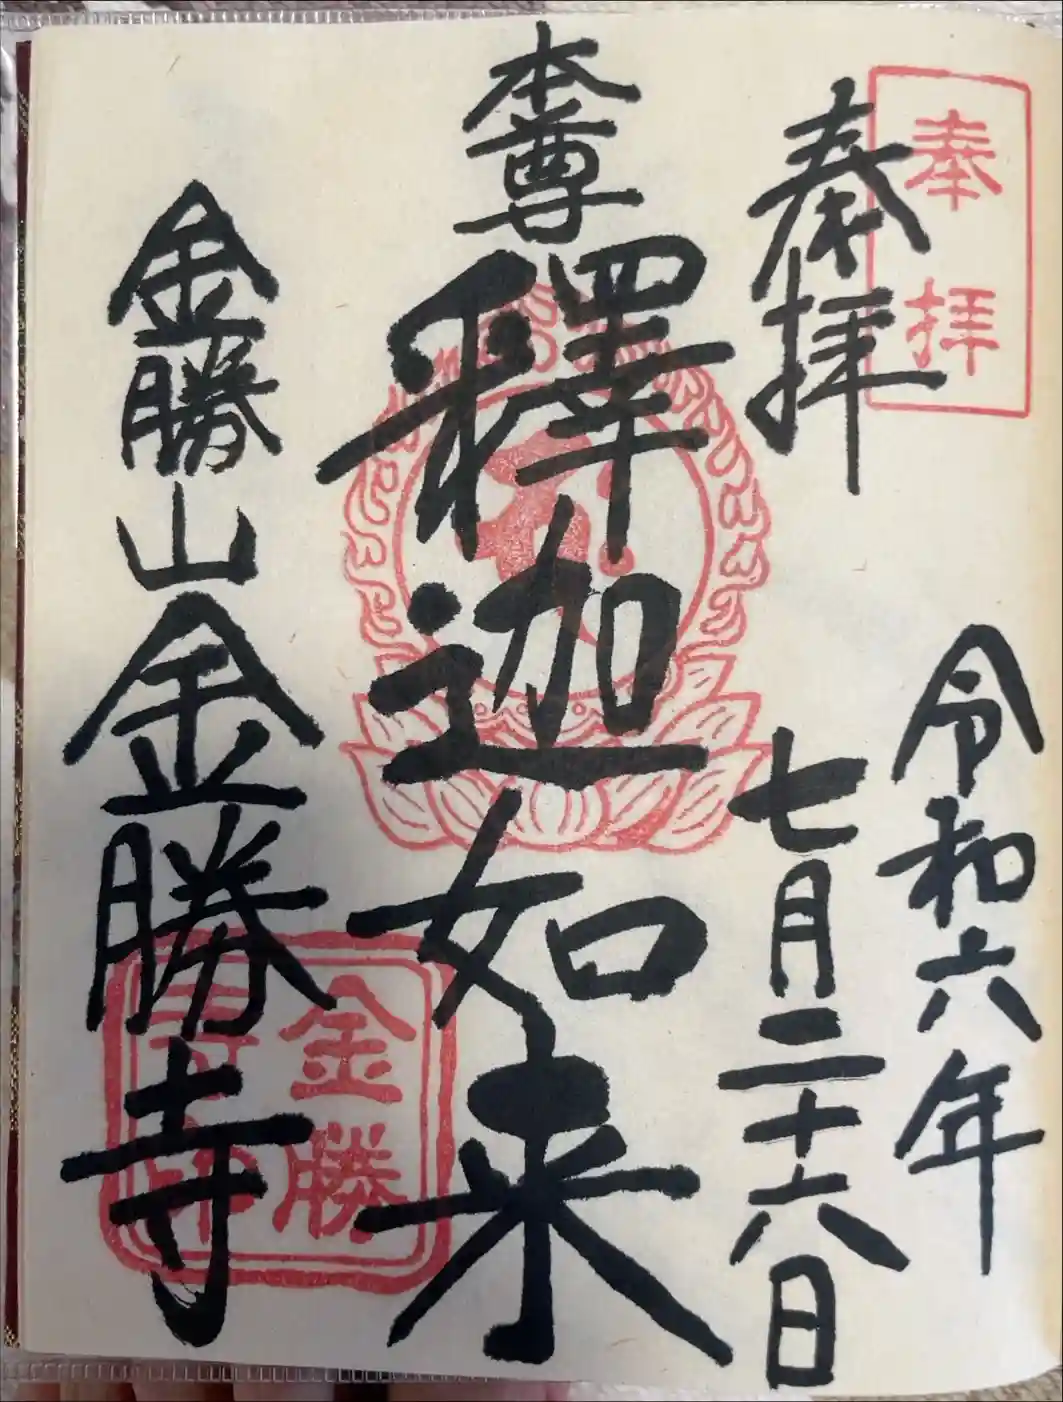 奉拝
奉拝
令和六年
七月二十六日
本尊
釋迦如来
金勝山
金勝寺
金勝
寺印